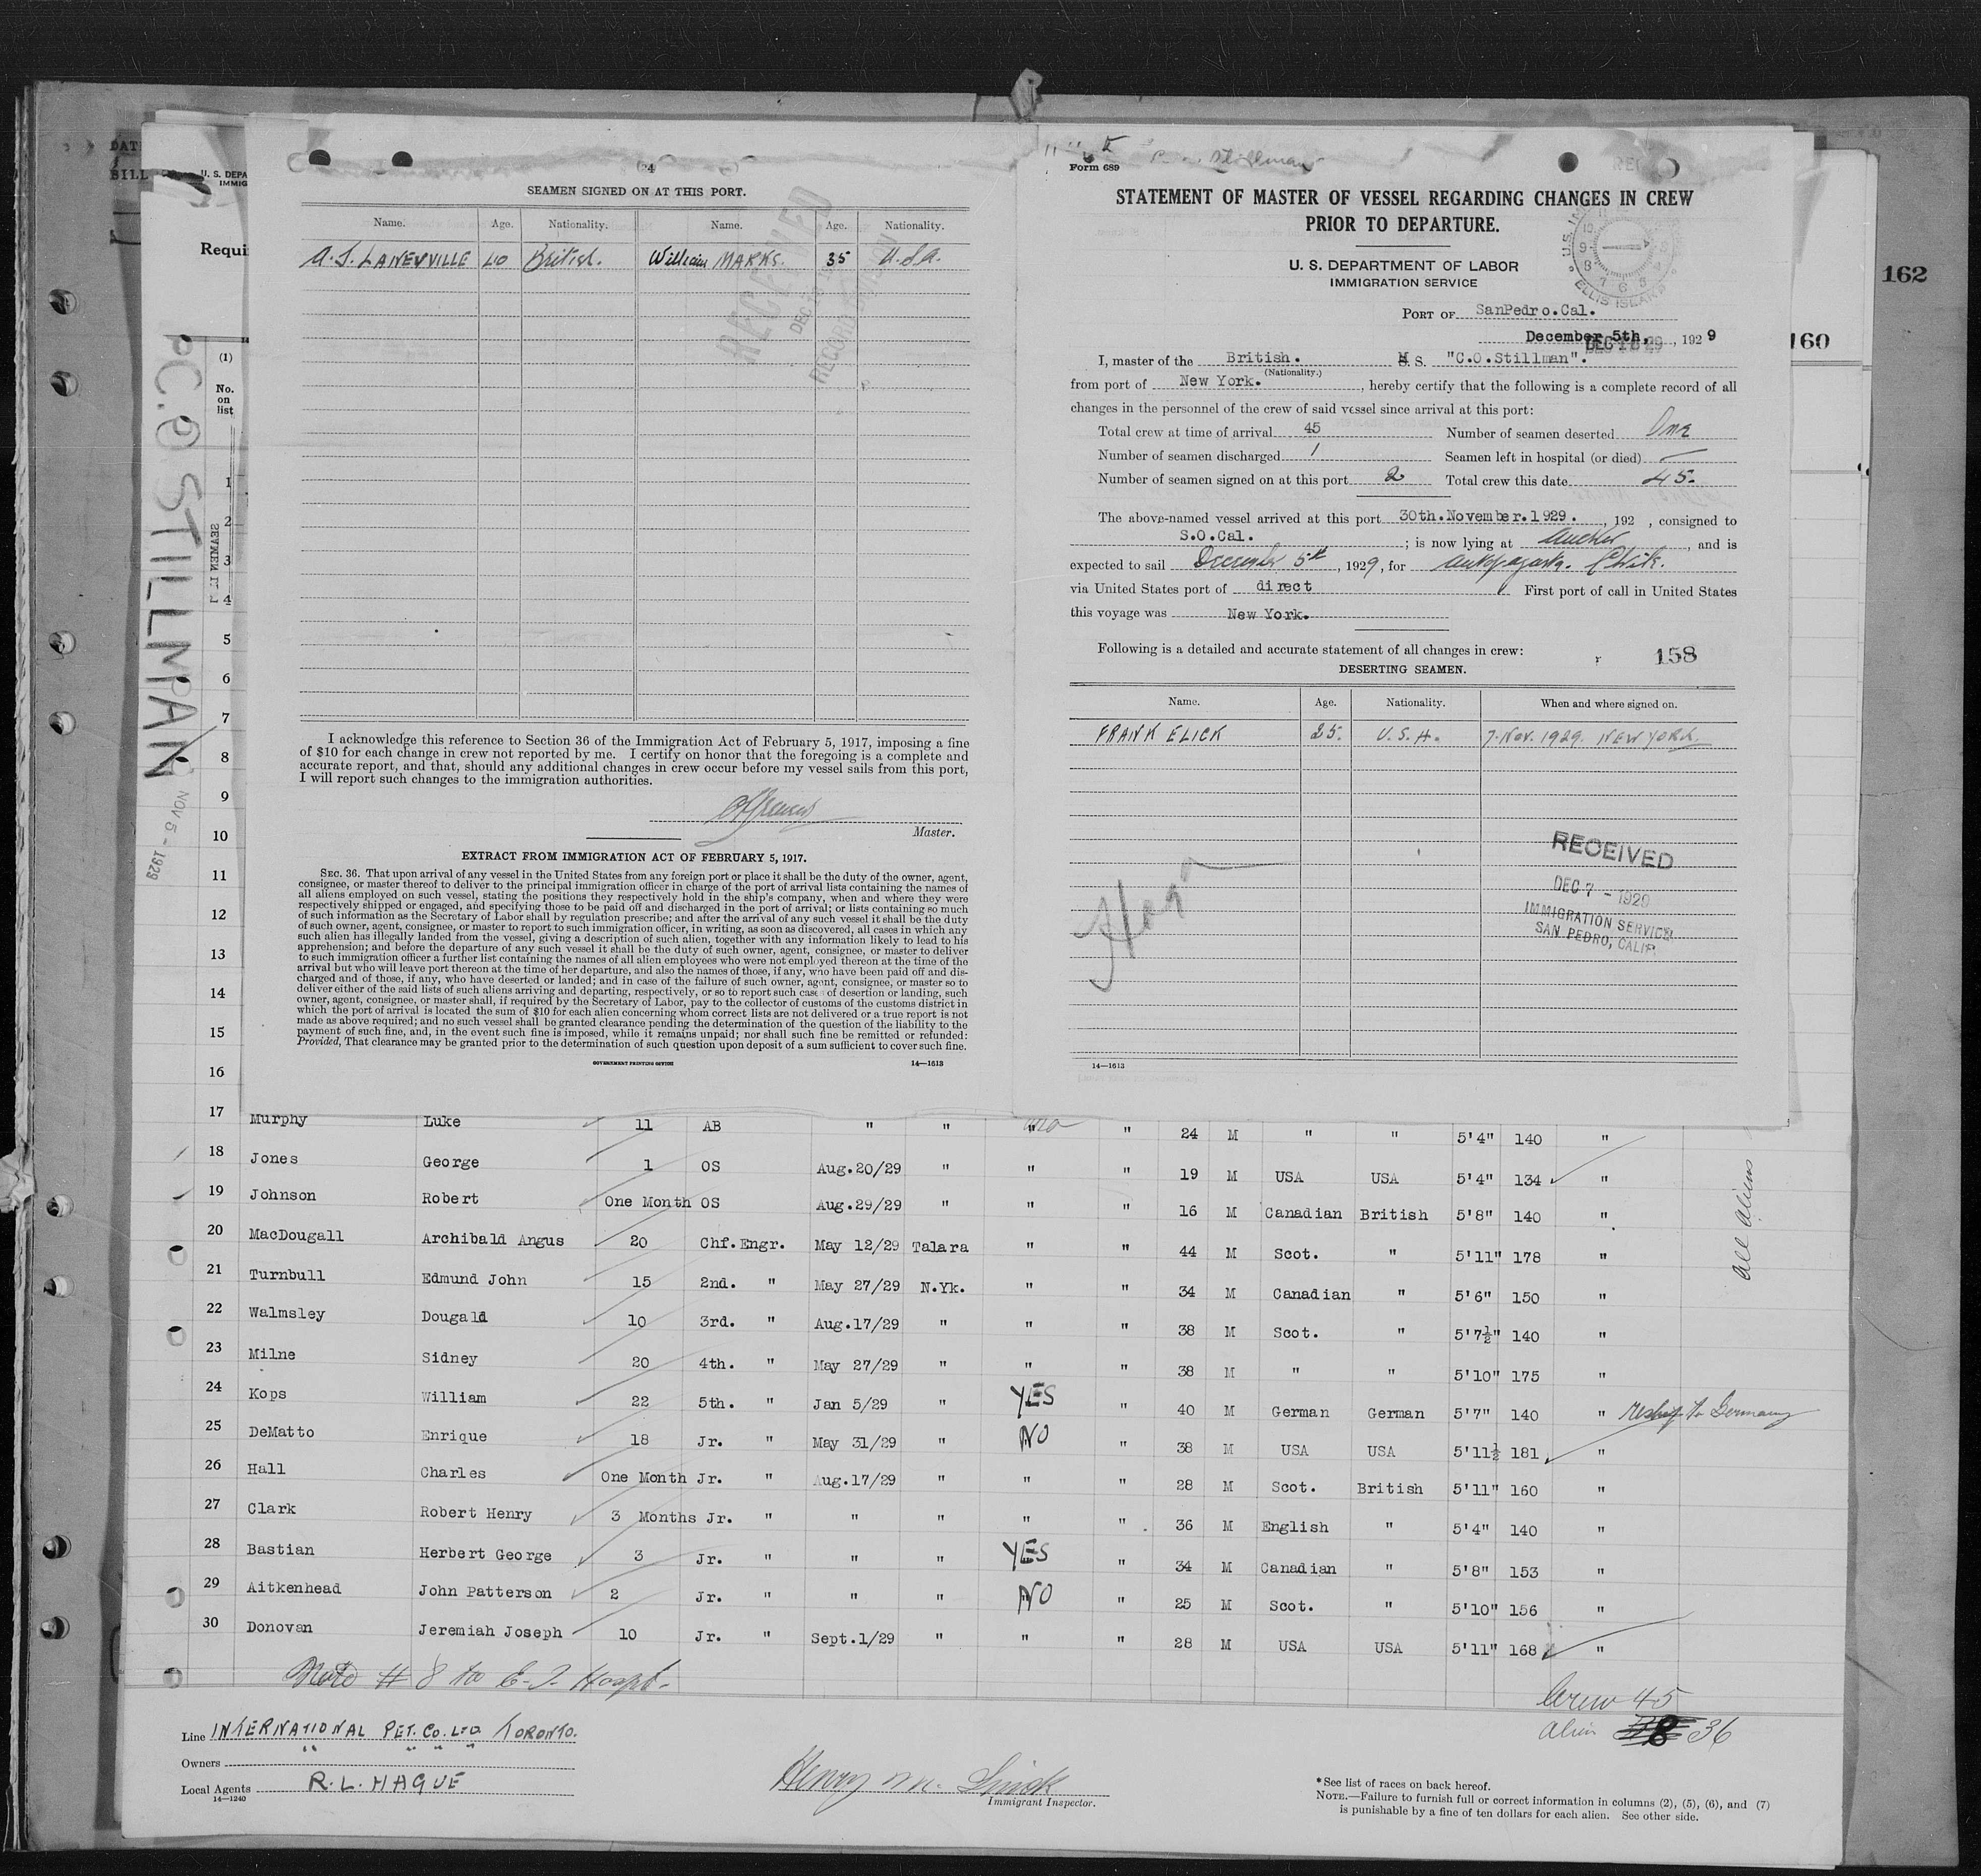 (4)
SEAMEN SIGNED ON AT THIS PORT.
Name. Age. Nationality. Name. Age. Nationality.
A. S. LANEVVILLE 40 British. William MARKS. 35 U.S.A.
RECEIVED
DEC
RECORD DIVISION
I acknowledge this reference to Section 36 of the Immigration Act of February 5, 1917, imposing a fine
of $10 for each change in crew not reported by me. I certify on honor that the foregoing is a complete and
accurate report, and that, should any additional changes in crew occur before my vessel sails from this port,
I will report such changes to the immigration authorities.
Master.
EXTRACT FROM IMMIGRATION ACT OF FEBRUARY 5, 1917.
SEC. 36. That upon arrival of any vessel in the United States from any foreign port or place it shall be the duty of the owner, agent,
consignee, or master thereof to deliver to the principal immigration officer in charge of the port of arrival lists containing the names of
all aliens employed on such vessel, stating the positions they respectively hold in the ship's company, when and where they were
respectively shipped or engaged, and specifying those to be paid off and discharged in the port of arrival; or lists containing so much
of such information as the Secretary of Labor shall by regulation prescribe; and after the arrival of any such vessel it shall be the duty
of such owner, agent, consignee, or master to report to such immigration officer, in writing, as soon as discovered, all cases in which any
such alien has illegally landed from the vessel, giving a description of such alien, together with any information likely to lead to his
apprehension; and before the departure of any such vessel it shall be the duty of such owner, agent, consignee, or master to deliver
to such immigration officer a further list containing the names of all alien employees who were not employed thereon at the time of the
arrival but who will leave port thereon at the time of her departure, and also the names of those, if any, who have been paid off and dis-
charged and of those, if any, who have deserted or landed; and in case of the failure of such owner, agent, consignee, or master so to
deliver either of the said lists of such aliens arriving and departing, respectively, or so to report such cases of desertion or landing, such
owner, agent, consignee, or master shall, if required by the Secretary of Labor, pay to the collector of customs of the customs district in
which the port of arrival is located the sum of $10 for each alien concerning whom correct lists are not delivered or a true report is not
made as above required; and no such vessel shall be granted clearance pending the determination of the question of the liability to the
payment of such fine, and, in the event such fine is imposed, while it remains unpaid; nor shall such fine be remitted or refunded:
Provided, That clearance may be granted prior to the determination of such question upon deposit of a sum sufficient to cover such fine.
GOVERNMENT PRINTING OFFICE 14—1613
Form 689
Stillman
STATEMENT OF MASTER OF VESSEL REGARDING CHANGES IN CREW
PRIOR TO DEPARTURE.
U. S. DEPARTMENT OF LABOR
IMMIGRATION SERVICE
ELLIS ISLAND
PORT OF SanPedro.Cal.
December 5th, , 1929
I, master of the British. M S. "C.O.Stillman".
(Nationality.)
from port of New York. , hereby certify that the following is a complete record of all
changes in the personnel of the crew of said vessel since arrival at this port:
Total crew at time of arrival 45 Number of seamen deserted One
Number of seamen discharged 1 Seamen left in hospital (or died) —
Number of seamen signed on at this port 2 Total crew this date 45.
The above-named vessel arrived at this port 30th.November.1929. , 192 , consigned to
S.O.Cal. ; is now lying at Anchor , and is
expected to sail December 5th , 1929, for Antofagasta. Chile.
via United States port of direct First port of call in United States
this voyage was New York.
Following is a detailed and accurate statement of all changes in crew: 158
DESERTING SEAMEN.
Name. Age. Nationality. When and where signed on.
FRANK ELICK 25. U.S.A. 7. Nov. 1929. NEW YORK.
RECEIVED
DEC 7 - 1929
IMMIGRATION SERVICE
SAN PEDRO, CALIF.
14—1613
162
160
DATE
BILL
U. S. DEPA
IMMIG
Requi
C.O STILLMAN
NOV 5 - 1929
(1)
No.
on
list
1
2
3
4
5
6
7
8
9
10
11
12
13
14
15
16
17 Murphy Luke 11 AB " " " " 24 M " " 5'4" 140 "
18 Jones George 1 OS Aug.20/29 " " " 19 M USA USA 5'4" 134 "
19 Johnson Robert One Month OS Aug.29/29 " " " 16 M Canadian British 5'8" 140 "
20 MacDougall Archibald Angus 20 Chf.Engr. May 12/29 Talara " " 44 M Scot. " 5'11" 178 "
21 Turnbull Edmund John 15 2nd. " May 27/29 N.Yk. " " 34 M Canadian " 5'6" 150 "
22 Walmsley Dougald 10 3rd. " Aug.17/29 " " " 38 M Scot. " 5'7½" 140 "
23 Milne Sidney 20 4th. " May 27/29 " " " 38 M " " 5'10" 175 "
24 Kops William 22 5th. " Jan 5/29 " YES " 40 M German German 5'7" 140 " reship to Germany
25 DeMatto Enrique 18 Jr. " May 31/29 " NO " 38 M USA USA 5'11½ 181 "
26 Hall Charles One Month Jr. " Aug.17/29 " " " 28 M Scot. British 5'11" 160 "
27 Clark Robert Henry 3 Months Jr. " " " " " 36 M English " 5'4" 140 "
28 Bastian Herbert George 3 Jr. " " " YES " 34 M Canadian " 5'8" 153 "
29 Aitkenhead John Patterson 2 Jr. " " " NO " 25 M Scot. " 5'10" 156 "
30 Donovan Jeremiah Joseph 10 Jr. " Sept.1/29 " " " 28 M USA USA 5'11" 168 "
All Aliens
Note # 8 to E. I. Hospt.
Crew 45
Alien 36
Line INTERNATIONAL PET. Co. LTD. TORONTO.
Owners " " " "
Local Agents R. L. HAGUE
14—1240
Immigrant Inspector.
*See list of races on back hereof.
NOTE.—Failure to furnish full or correct information in columns (2), (5), (6), and (7)
is punishable by a fine of ten dollars for each alien. See other side.